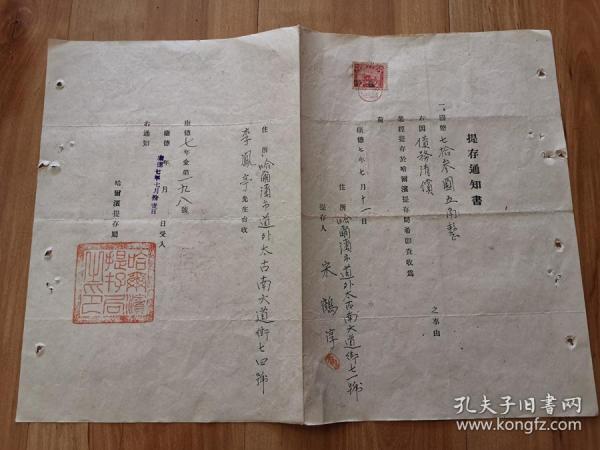 提存通知書
一、國幣七拾叁圓五角整
右因債務清償 之事由
業經提存於哈爾濱提存局希即查收爲
荷
康德七年七月十一日
住所哈爾濱市道外太古南大道街七一號
提存人 宋鶴淳
住所哈爾濱市道外太古南大道街七四號
李鳳亭先生台收
康德七年金第一九八號
康德 年 月 日受入
康德七年七月拾壹日
右通知
哈爾濱提存局
哈爾濱
提存局
之印
孔夫子旧书网
www.kongfz.com